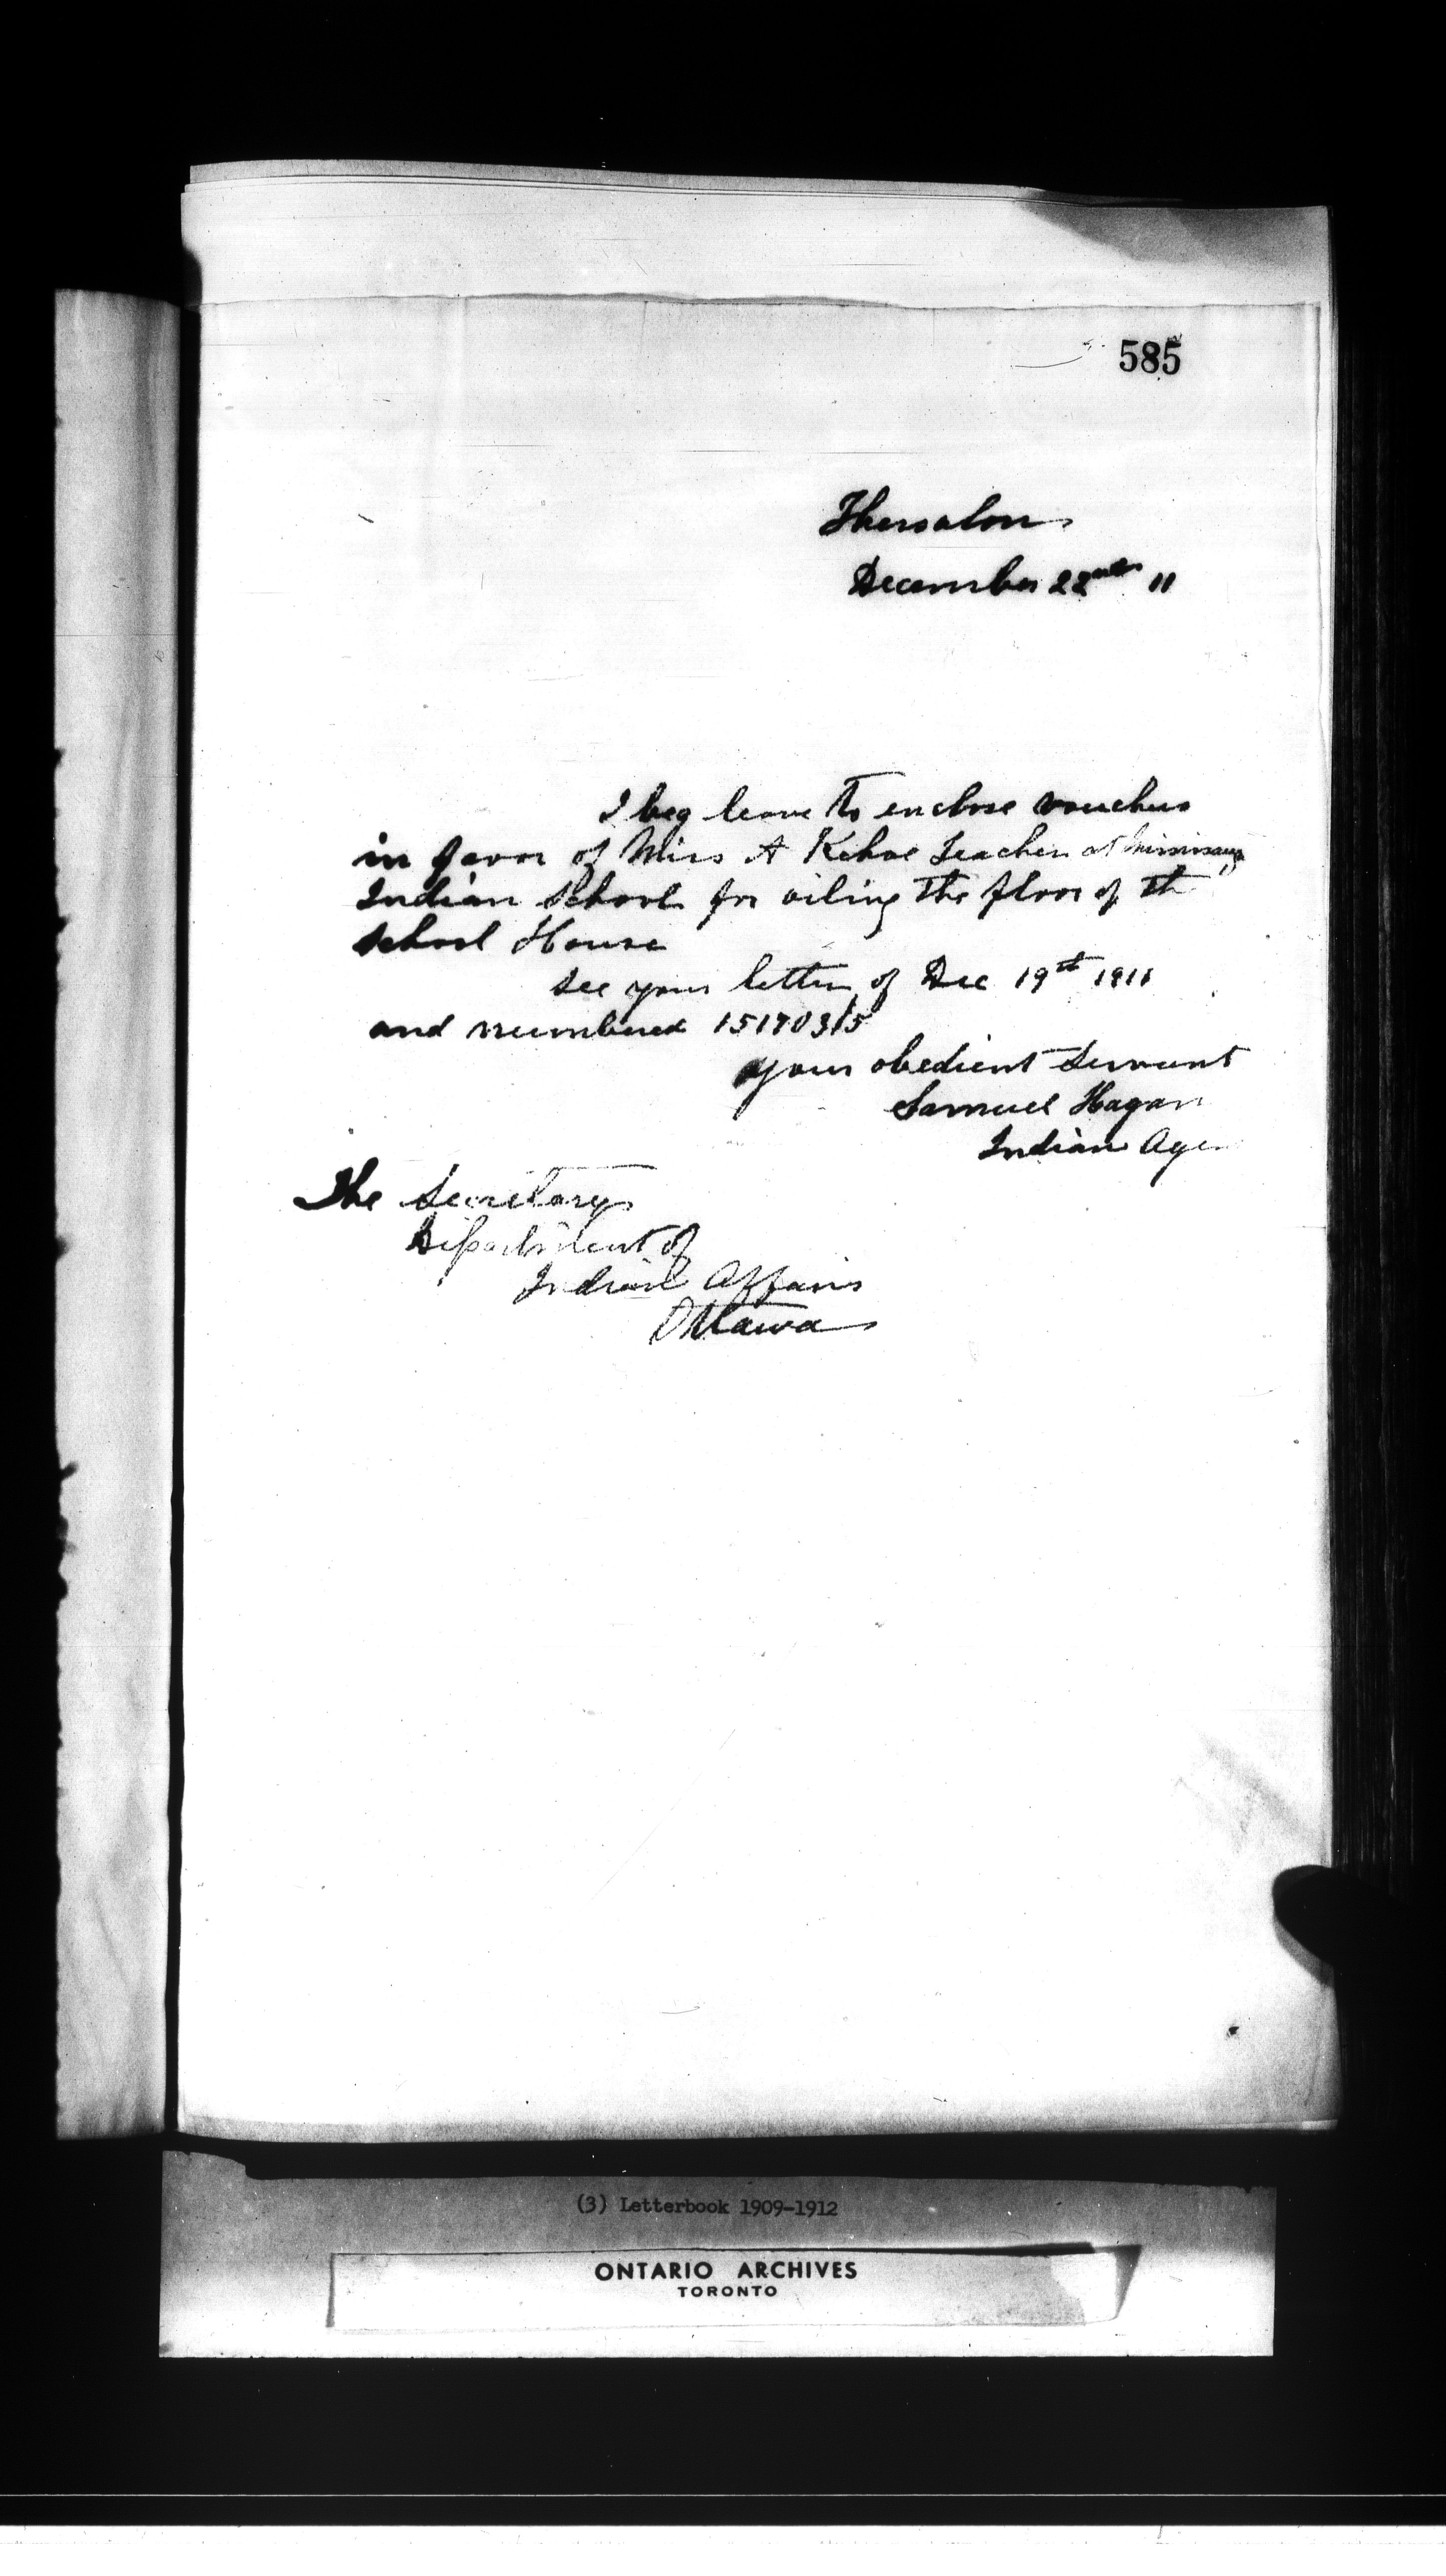 585
Thessalon
December 22nd 11
I beg leave to enclose vouchers
in favor of Miss A Kehoe Teacher at Mississauga
Indian School for oiling the floor of th
school House
see your letter of Dec 19st 1911
and numbered
your obedient Servant
Samuel Hagan
Indian Agen
The Secretary
Department of
Indian Affairs
Ottawa
(3) Letterbook 1909-1912
ONTARIO ARCHIVES
TORONTO